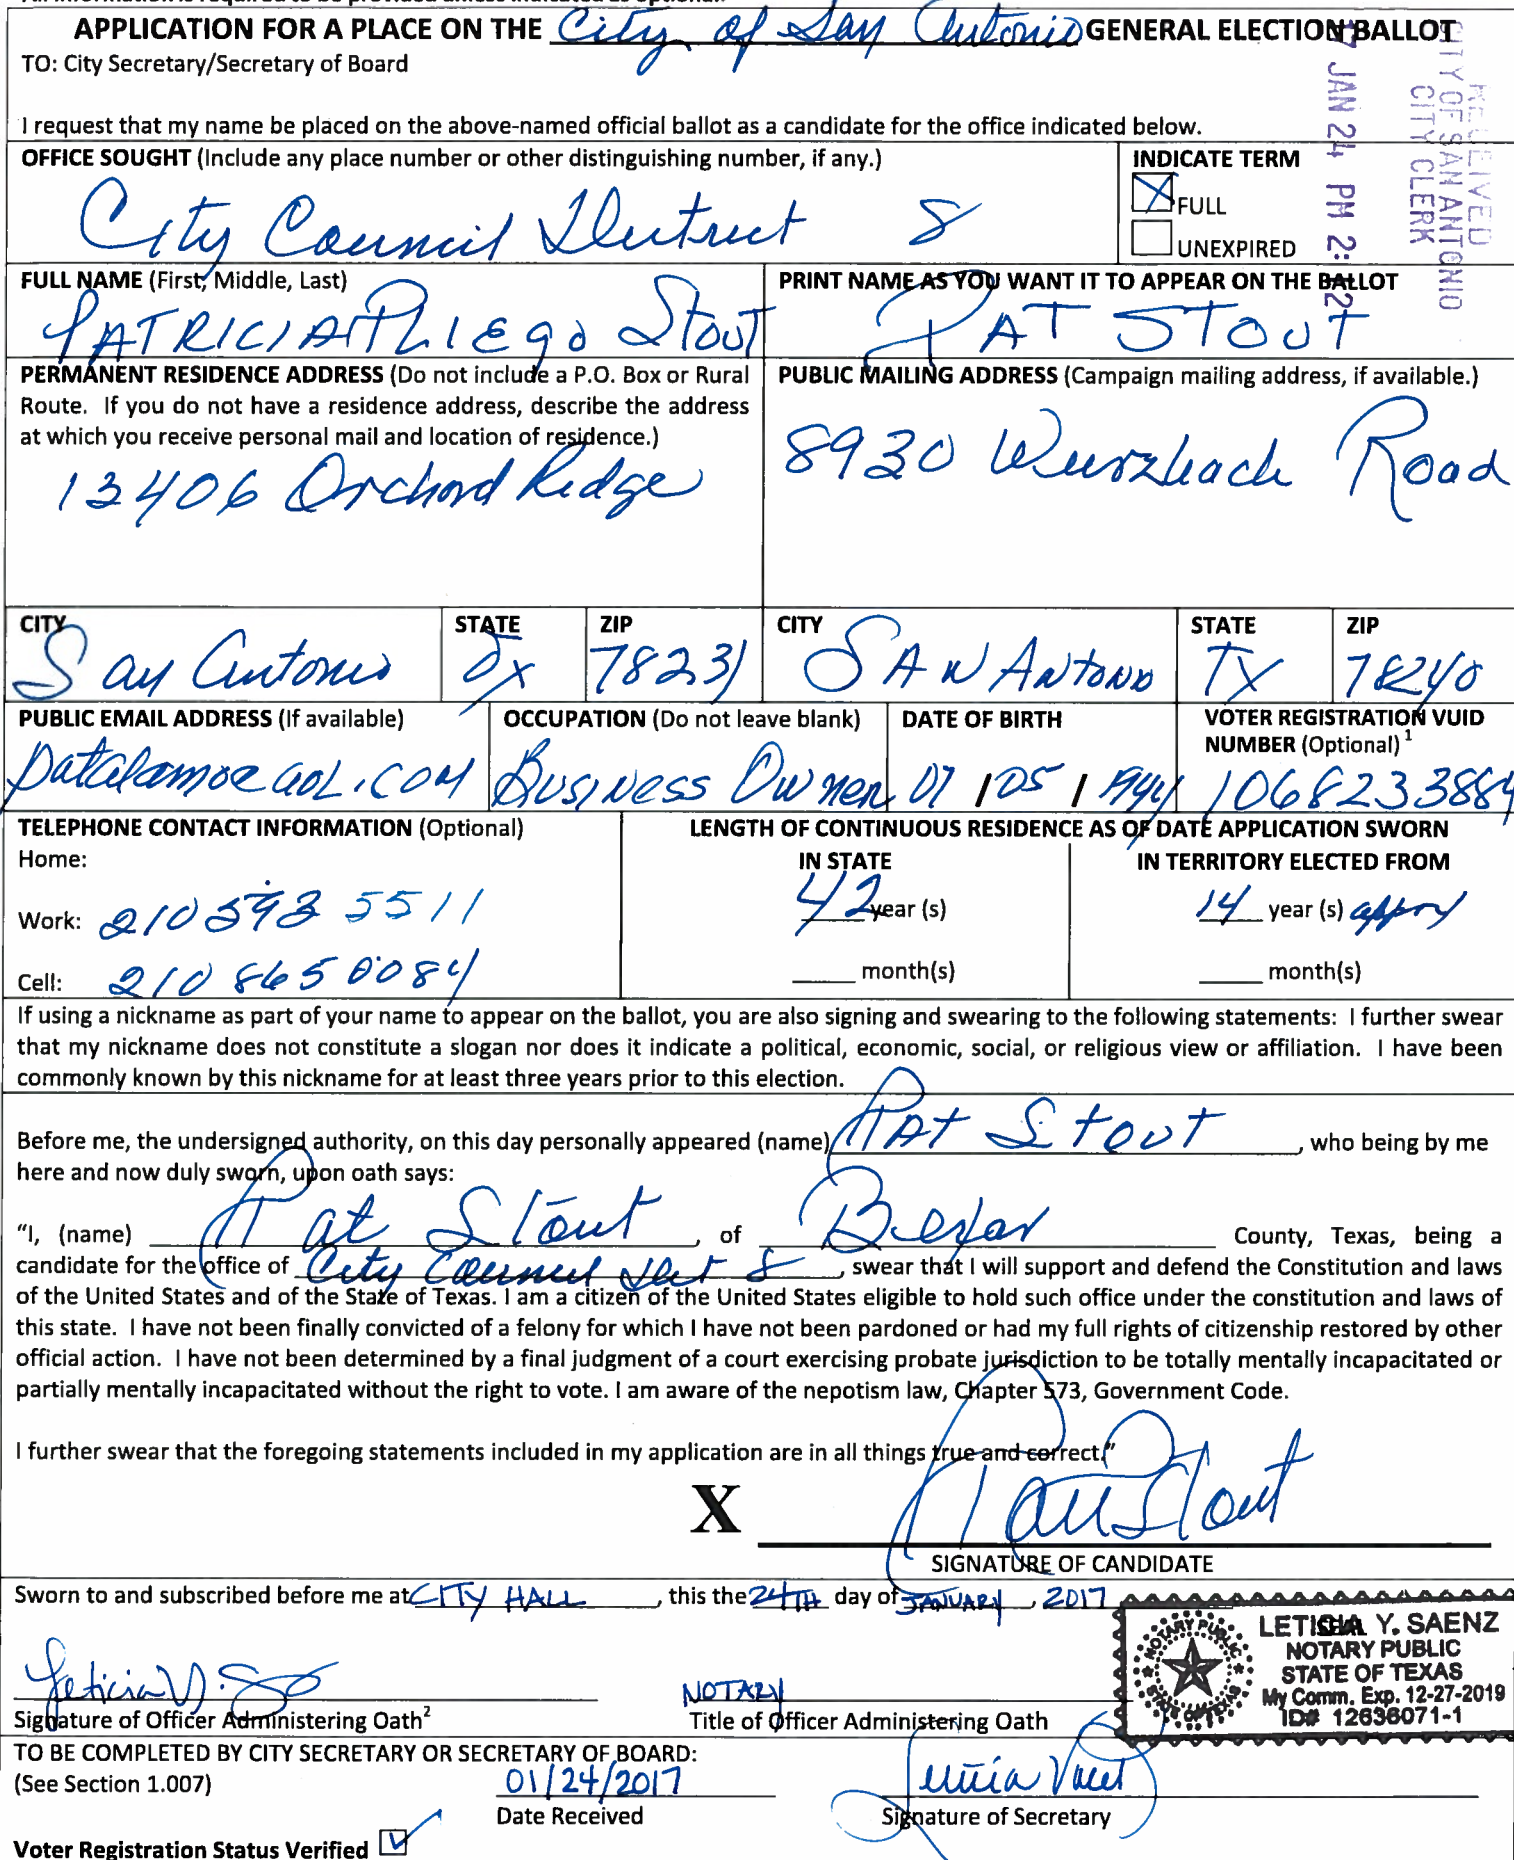 APPLICATION FOR A PLACE ON THE City of San Antonio GENERAL ELECTION BALLOT
TO: City Secretary/Secretary of Board
RECEIVED
CITY OF SAN ANTONIO
CITY CLERK
17 JAN 24 PM 2:
I request that my name be placed on the above-named official ballot as a candidate for the office indicated below.
OFFICE SOUGHT (Include any place number or other distinguishing number, if any.)
City Council District 8
INDICATE TERM
FULL
UNEXPIRED
FULL NAME (First, Middle, Last)
PATRICIA Pliego Stout
PRINT NAME AS YOU WANT IT TO APPEAR ON THE BALLOT
PAT STOUT
PERMANENT RESIDENCE ADDRESS (Do not include a P.O. Box or Rural
Route. If you do not have a residence address, describe the address
at which you receive personal mail and location of residence.)
13406 Orchard Ridge
PUBLIC MAILING ADDRESS (Campaign mailing address, if available.)
8930 Wurzbach Road
CITY STATE ZIP
San Antonio Tx 78231
CITY STATE ZIP
SAN ANtoNo TX 78240
PUBLIC EMAIL ADDRESS (If available)
Patalamo@aol.com
OCCUPATION (Do not leave blank)
Business Owner
DATE OF BIRTH
07 / 05 /
VOTER REGISTRATION VUID
NUMBER (Optional) 1
1068233884
TELEPHONE CONTACT INFORMATION (Optional)
Home:
Work: 210 5511
Cell: 210 865 0084
LENGTH OF CONTINUOUS RESIDENCE AS OF DATE APPLICATION SWORN
IN STATE
42 year (s)
month(s)
IN TERRITORY ELECTED FROM
14 year (s) approx
month(s)
If using a nickname as part of your name to appear on the ballot, you are also signing and swearing to the following statements: I further swear
that my nickname does not constitute a slogan nor does it indicate a political, economic, social, or religious view or affiliation. I have been
commonly known by this nickname for at least three years prior to this election.
Before me, the undersigned authority, on this day personally appeared (name) PAT Stout, who being by me
here and now duly sworn, upon oath says:
"I, (name) Pat Stout, of Bexar County, Texas, being a
candidate for the office of City Council Dist 8, swear that I will support and defend the Constitution and laws
of the United States and of the State of Texas. I am a citizen of the United States eligible to hold such office under the constitution and laws of
this state. I have not been finally convicted of a felony for which I have not been pardoned or had my full rights of citizenship restored by other
official action. I have not been determined by a final judgment of a court exercising probate jurisdiction to be totally mentally incapacitated or
partially mentally incapacitated without the right to vote. I am aware of the nepotism law, Chapter 573, Government Code.
I further swear that the foregoing statements included in my application are in all things true and correct."
X Pat Stout
SIGNATURE OF CANDIDATE
Sworn to and subscribed before me at CITY HALL, this the 24TH day of JANUARY, 2017
LETICIA Y. SAENZ
NOTARY PUBLIC
STATE OF TEXAS
My Comm. Exp. 12-27-2019
ID# 12636071-1
NOTARY PUBLIC
STATE OF TEXAS
Leticia Y.
NOTARY
Signature of Officer Administering Oath2
Title of Officer Administering Oath
TO BE COMPLETED BY CITY SECRETARY OR SECRETARY OF BOARD:
(See Section 1.007)
01/24/2017
Date Received
Signature of Secretary
Voter Registration Status Verified